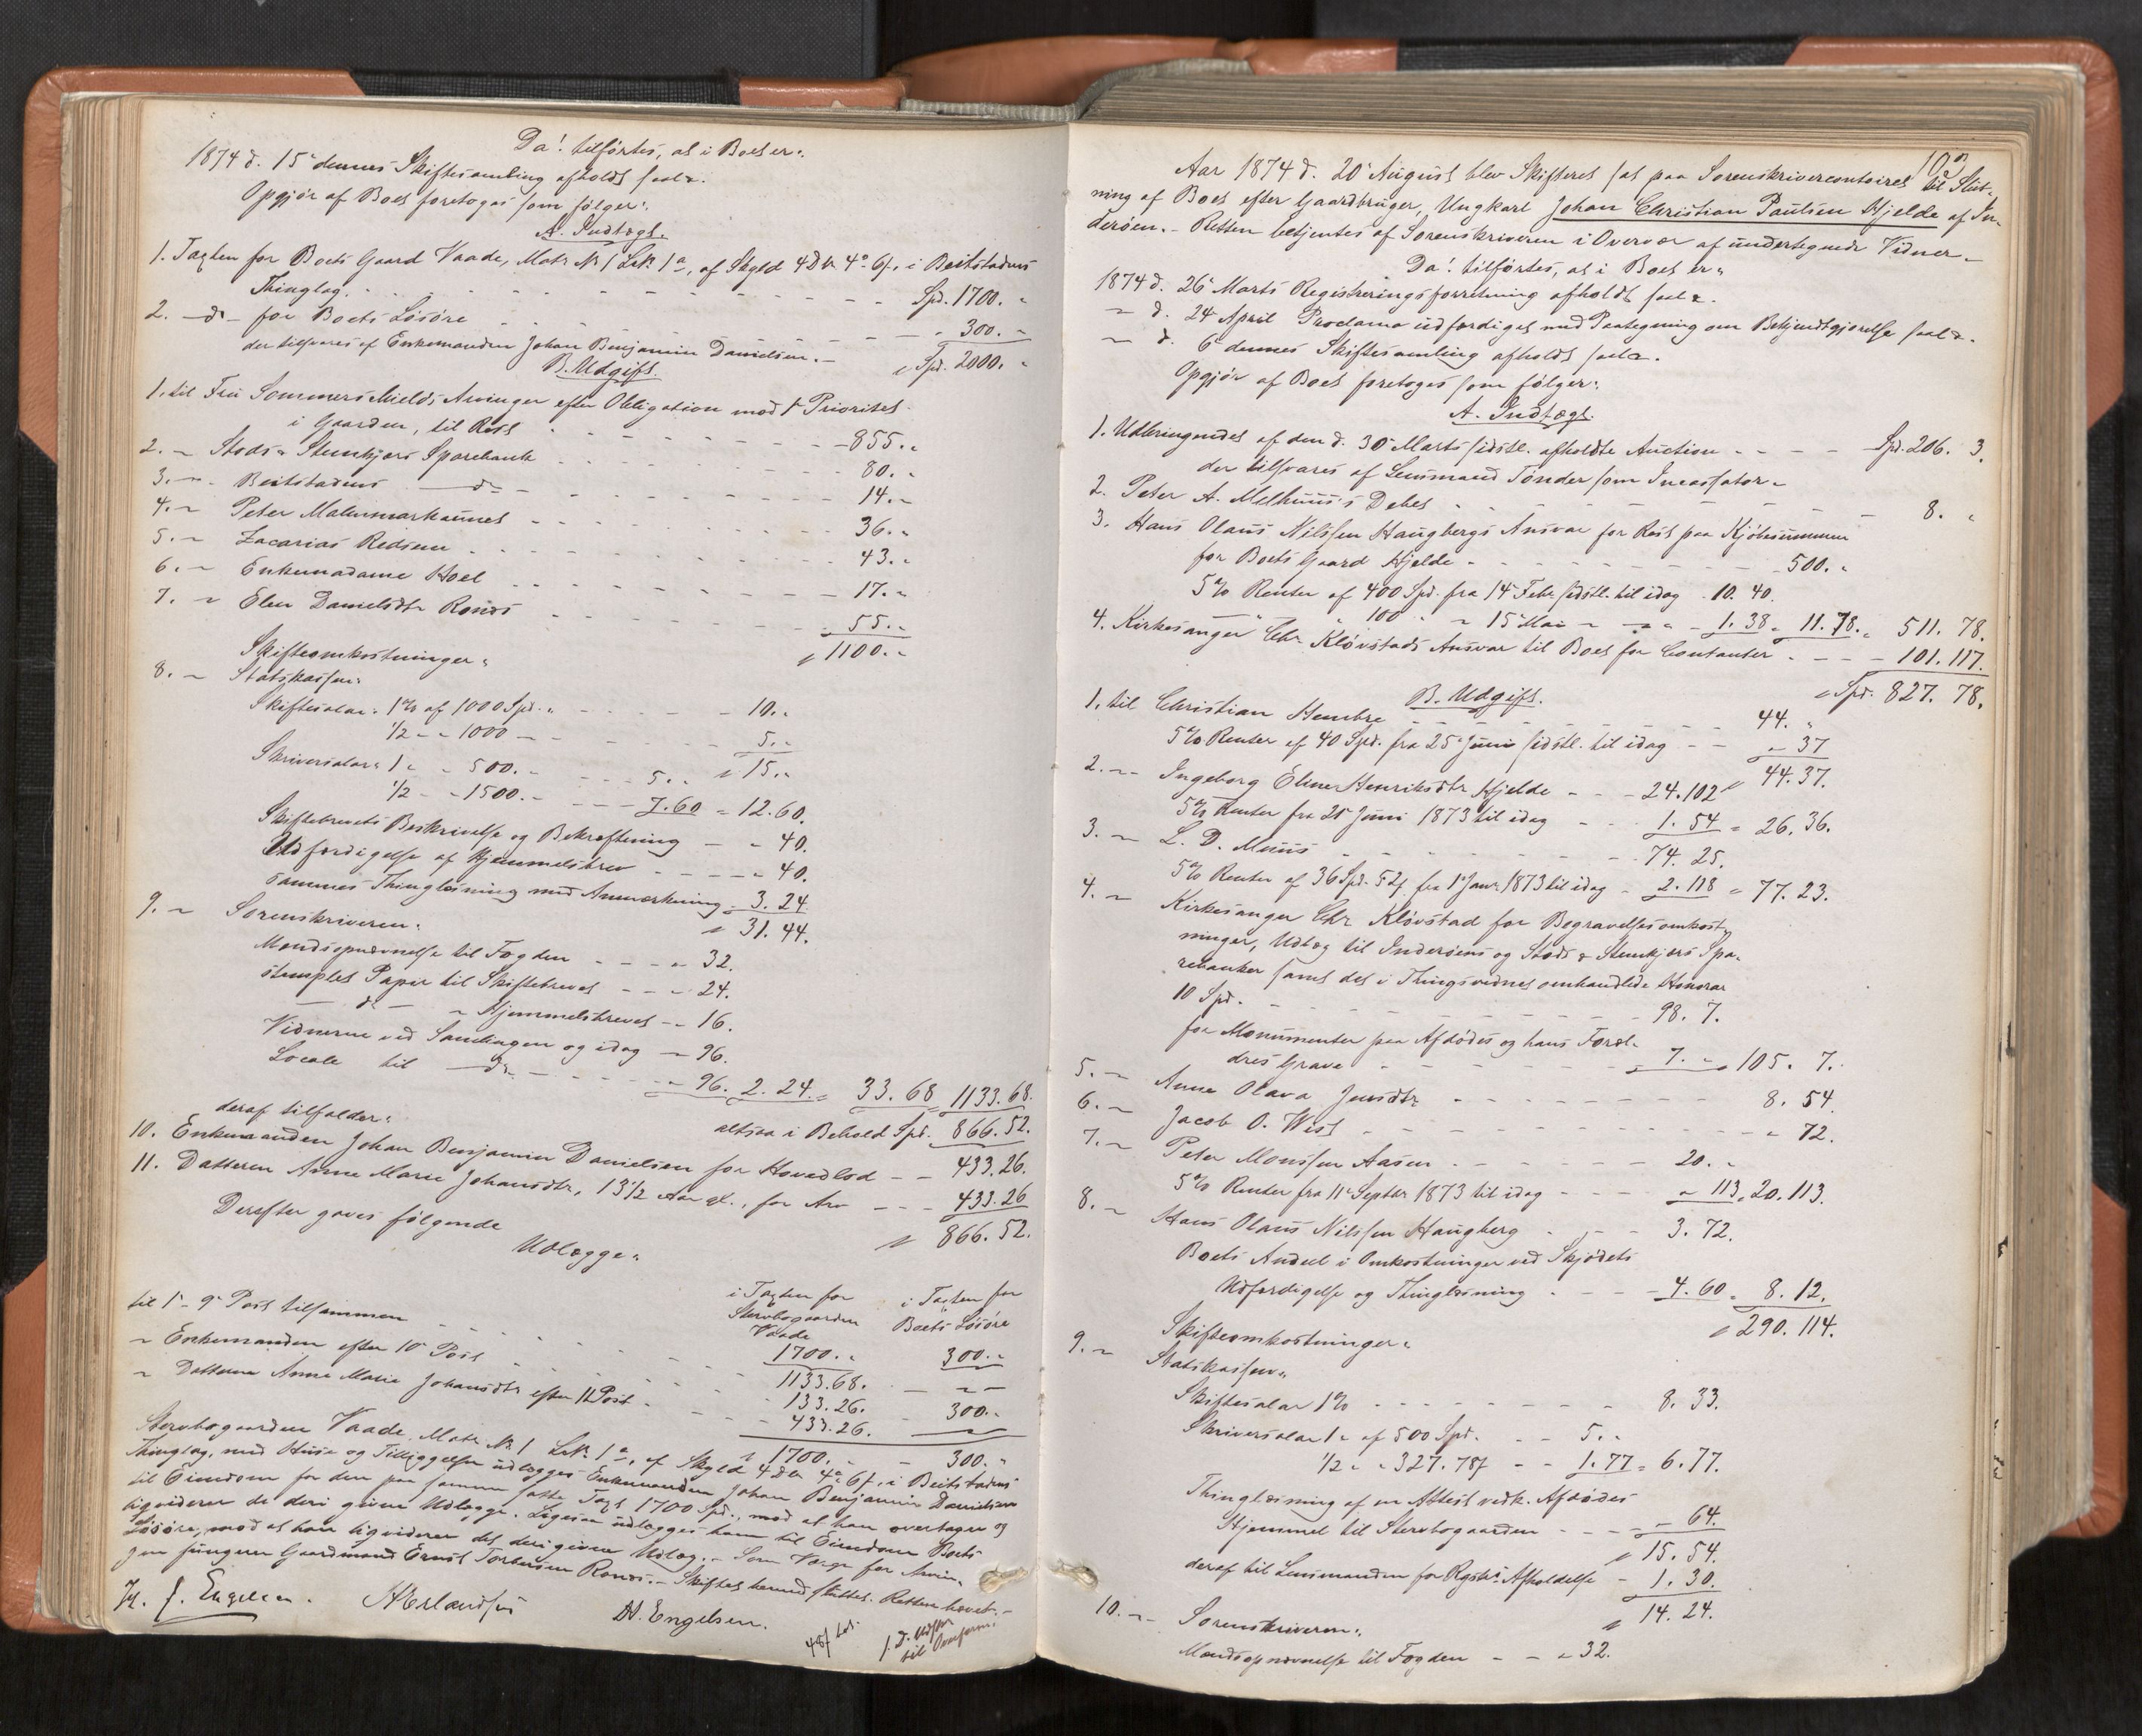 Da! tilførtes, at i Boet er:
1874 d. 15 dennes Skiftesamling afholdt saal.
Opgjør af Boet foretoges som følger:
A. Indtægt.
1. Taxten for Boets Gaard Vaade, Matr. No 1 Lbn. 1a, af Skyld 4 Dlr. 4 o 6 ſ, i Beitstadens
Thinglag. - - - Spd. 1700. "
2. - do - for Boets Løsøre - - - " 300. "
der tilsvares af Enkemanden Johan Benjamin Danielsen. - Spd. 2000. "
B. Udgift.
1. til Fru Sommerschields Arvinger efter Obligation mod 1 Prioritet
i Gaarden, til Rest - - - 855. "
2. " Stods & Stenkjærs Sparebank - - - 80. "
3. " Beitstadens - do - - - - 14. "
4. " Peter Malummarkaunet - - - 36. "
5. " Zacarias Redsem - - - 43. "
6. " Enkemadame Hoel - - - 17. "
7. " Elen Danielsdtr Ronæs - - - 55. "
1100. "
Skifteomkostninger:
8. " Statskassen:
Skiftesalar: 1% af 1000 Spd. - - - 10. "
1/2 - - 1000 - - - 5. "
15. "
Skriversalar: 1 " - 500. - - - 5. "
1/2 - - 1500. - - - 7.60 = 12.60.
Skiftebrevets Beskrivelse og Bekræftning - " 40.
Udfærdigelse af Hjemmelsbrev - - - " 40.
Sammes Thinglæsning med Anmærkning 3. 24
31. 44.
9. " Sorenskriveren:
Mændsopnævnelse til Fogden - - - " 32.
stemplet Papir til Skiftebrevet - - " 24.
- do - " Hjemmelsbrevet - " 16.
Vidnerne ved Samlingen og idag - " 96.
Locale til - do - - - " 96. 2. 24. = 33. 68 1133. 68.
altsaa i Behold Spd. 866. 52.
deraf tilfalder:
10. Enkemanden Johan Benjamin Danielsen for Hovedlod - - 433. 26.
11. Datteren Anne Marie Johansdtr, 13 1/2 Aar gl., for Arv - - 433. 26
866. 52.
Derefter gaves følgende
Udlægge:
i Taxten for Stervbogaarden Vaade
i Taxten for Boets Løsøre
1700. " 300. "
til 1 - 9 Post tilsammen - - - 1133. 68. - " -
" Enkemanden efter 10 Post - - - 133. 26. 300. "
" Datteren Anne Marie Johansdtr efter 11 Post - - - 433. 26.
1700. " 300. "
Stervbogaarden Vaade, Matr. No 1 Lbn. 1a, af Skyld 4 Dlr. 4 o 6 ſ, i Beitstadens
Thinglag, med Huse og Tilliggelse udlægges Enkemanden Johan Benjamin Danielsen
til Eiendom for den paa samme satte Taxt 1700 Spd., mod at han overtager og
liquiderer de deri givne Udlægge. Ligesaa udlægges ham til Eiendom Boets
Løsøre, mod at han liqviderer det deri givne Udlæg. - Som Værge for Arvin-
gen fungerer Gaardmand Ernst Torbersen Ronæs. - Skiftet hermed sluttet. Retten hævet. -
H. J. Engelsen. A Erlandsen H. Engelsen.
Aar 1874 d. 20 August blev Skifteret sat paa Sorenskrivercontoiret til Slut-
ning af Boet efter Gaardbruger, Ungkarl Johan Christian Paulsen Hjelde af In-
derøen. - Retten betjentes af Sorenskriveren i Overvær af undertegnede Vidner -
Da! tilførtes, at i Boet er:
1874 d. 26 Marts Registreringsforretning afholdt saal.
" d. 24 April Proclama udfærdiget med Paategning om Bekjendtgjørelse saal.
" d. 6 dennes Skiftesamling afholdt saal.
Opgjør af Boet foretoges som følger:
A. Indtægt.
1. Udbringendet af den d. 30 Marts sidstl. afholdte Auction - - - Spd. 206. 3.
der tilsvares af Lensmand Tønder som Incassator -
2. Peter A. Melhuus's Debet - - - 8. "
3. Hans Olaus Nilssen Haugbergs Ansvar for Rest paa Kjøbesummen
for Boets Gaard Hjelde - - - 500. "
5% Renter af 400 Spd. fra 14 Febr. sidstl. til idag - 10. 40.
" 100 " " 15 Mai " - - 1. 38 = 11. 78. = 511. 78.
4. Kirkesanger Chr. Kløvstads Ansvar til Boet for Contanter - - - 101. 117.
Spd. 827. 78.
B. Udgift.
1. til Christian Hembre - - - 44. "
5% Renter af 40 Spd. fra 25 Juni sidstl. til idag - - " 37
44. 37.
2. " Ingeborg Eline Henriksdtr Hjelde - - - 24. 102
5% Renter fra 25 Juni 1873 til idag - - 1. 54 = 26. 36.
3. " L. D. Muus - - - 74. 25.
5% Renter af 36 Spd. 52 ſ fra 1 Janr. 1873 til idag - 2. 118 = 77. 23.
4. " Kirkesanger Chr. Kløvstad for Begravelsesomkost-
ninger, Udlæg til Inderøens og Stods & Stenkjærs Spa-
rebanker samt det i Thingsvidnet omhandlede Honorar
10 Spd. - - - 98. 7.
for Monumenter paa Afdødes og hans Foræl-
dres Grave - - - 7. " 105. 7.
5. " Anne Olava Jensdtr - - - 8. 54.
6. " Jacob O. West - - - " 72.
7. " Peter Monssen Aasen - - - 20. "
5% Renter fra 11 Septbr. 1873 til idag - - - " 113 = 20. 113.
8. " Hans Olaus Nilssen Haugberg - - - 3. 72.
Boets Andeel i Omkostninger ved Skjødets
Udfærdigelse og Thinglæsning - - - 4. 60 = 8. 12.
290. 114.
Skifteomkostninger:
9. " Statskassen:
Skiftesalar 1% - - - 8. 33.
Skriversalar 1 " af 500 Spd. - - 5. "
1/2 " " 327. 78 ſ - - 1. 77 = 6. 77.
Thinglæsning af en Attest vedk. Afdødes
Hjemmel til Stervbogaarden - - - " 64.
15. 54.
deraf til Lensmanden for Rgstr. Afholdelse - 1. 30.
14. 24.
10. " Sorenskriveren:
Mændsopnævnelse til Fogden - - " 32.